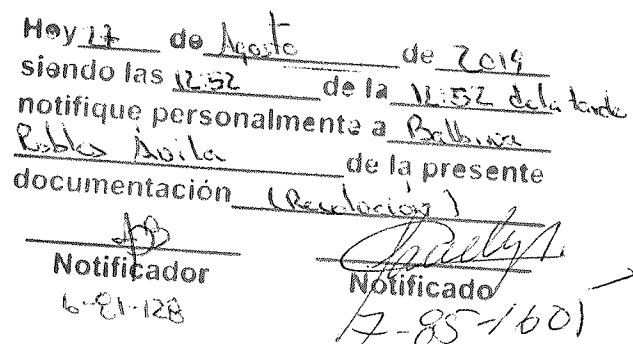 Hoy 27 de Agosto de 2019
siendo las 12:52 de la 12:52 de la tarde
notifique personalmente a Balbina
Robles Ávila de la presente
documentación (Resolución)
Notificador Notificado
6-81-128 7-85-1601